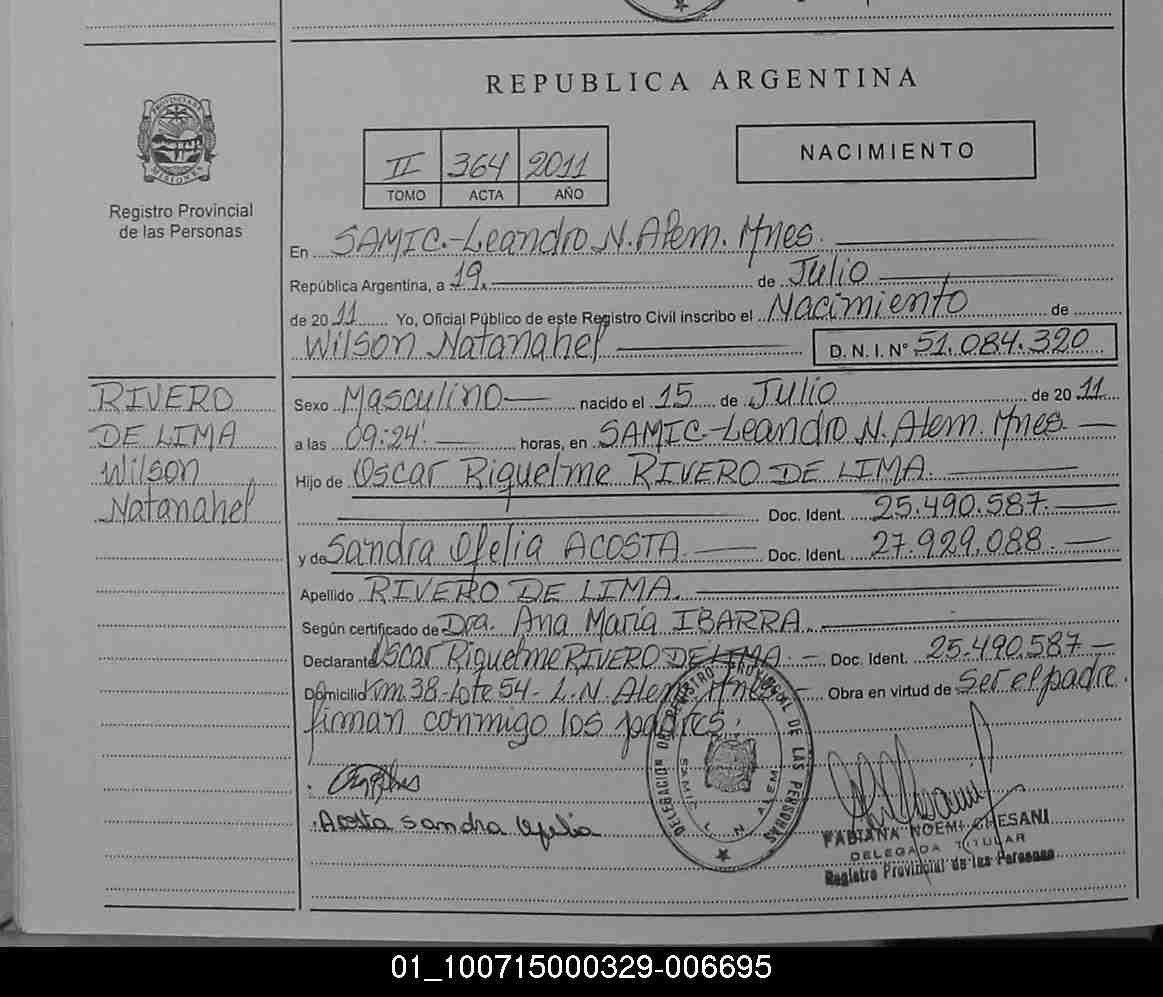 REPUBLICA ARGENTINA
PROVINCIA DE
MISIONES
Registro Provincial
de las Personas
II 364 2011
TOMO ACTA AÑO
NACIMIENTO
En SAMIC.-Leandro N. Alem. Mnes.
República Argentina, a 19. de Julio
de 2011 Yo, Oficial Público de este Registro Civil inscribo el Nacimiento de
Wilson Natanahel D. N. I. N° 51.084.320
RIVERO
DE LIMA
Wilson
Natanahel
Sexo Masculino nacido el 15 de Julio de 2011
a las 09:24' horas, en SAMIC-Leandro N. Alem. Mnes.
Hijo de Oscar Riquelme RIVERO DE LIMA.
Doc. Ident. 25.490.587.
y de Sandra Ofelia ACOSTA. Doc. Ident. 27.929.088.
Apellido RIVERO DE LIMA.
Según certificado de Dra. Ana María IBARRA.
Declarante Oscar Riquelme RIVERO DE LIMA Doc. Ident. 25.490.587
Domicilio Km 38-Lote 54- L.N. Alem Mnes Obra en virtud de Ser el padre.
firman conmigo los padres.
DELEGACION DEL REGISTRO PROVINCIAL DE LAS PERSONAS
SAMIC L. N. ALEM
Acosta Sandra Ofelia
FABIANA NOEMI GHESANI
DELEGADA TITULAR
Registro Provincial de las Personas
01_100715000329-006695